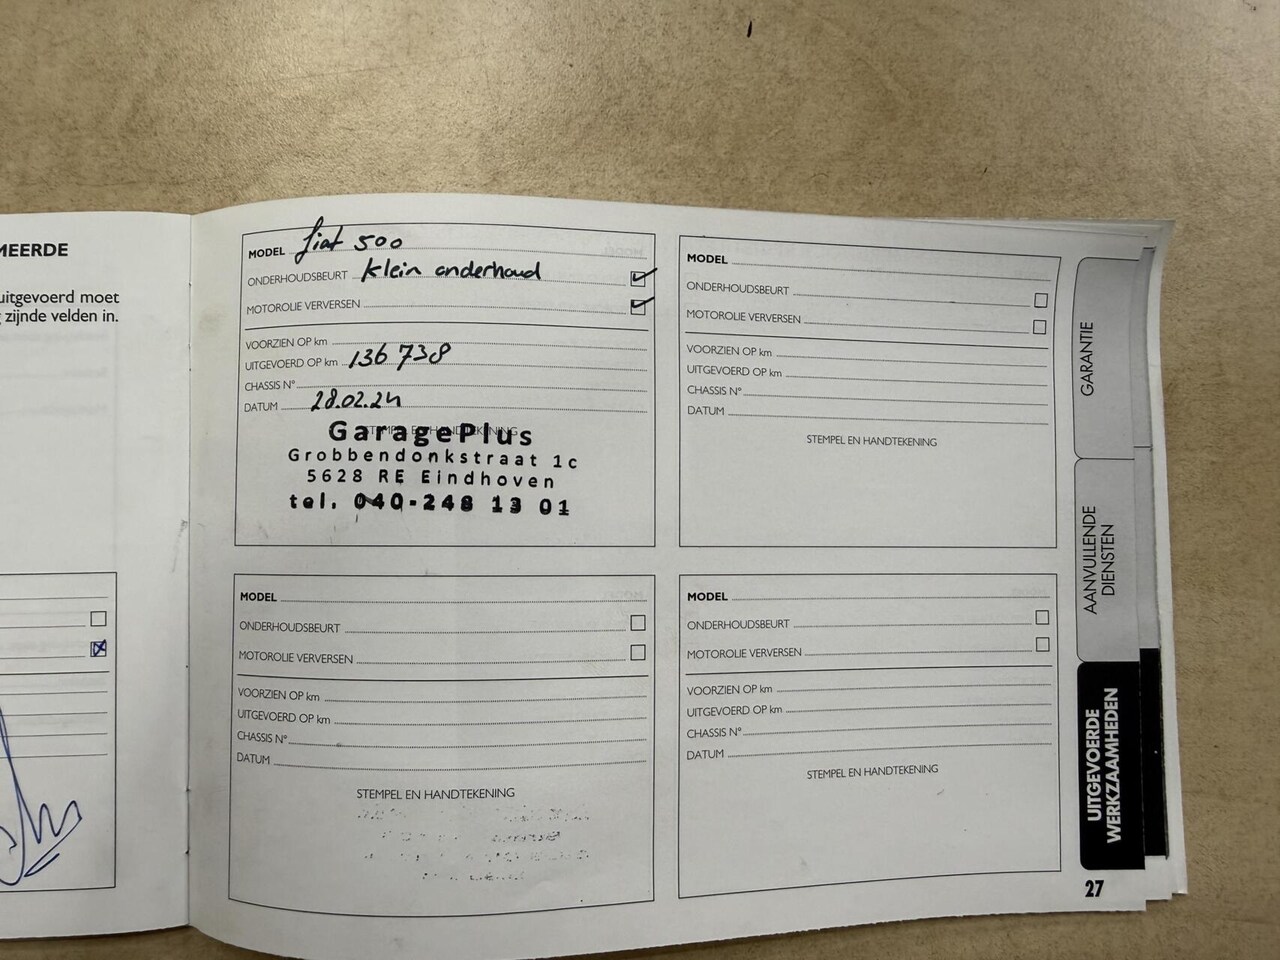 MEERDE
uitgevoerd moet
zijnde velden in.
MODEL fiat 500
ONDERHOUDSBEURT Klein onderhoud
MOTOROLIE VERVERSEN
VOORZIEN OP km
UITGEVOERD OP km 136 738
CHASSIS N°
DATUM 28.02.24
STEMPEL EN HANDTEKENING
GaragePlus
Grobbendonkstraat 1c
5628 RE Eindhoven
tel. 040-248 13 01
MODEL
ONDERHOUDSBEURT
MOTOROLIE VERVERSEN
VOORZIEN OP km
UITGEVOERD OP km
CHASSIS N°
DATUM
STEMPEL EN HANDTEKENING
MODEL
ONDERHOUDSBEURT
MOTOROLIE VERVERSEN
VOORZIEN OP km
UITGEVOERD OP km
CHASSIS N°
DATUM
STEMPEL EN HANDTEKENING
MODEL
ONDERHOUDSBEURT
MOTOROLIE VERVERSEN
VOORZIEN OP km
UITGEVOERD OP km
CHASSIS N°
DATUM
STEMPEL EN HANDTEKENING
GARANTIE
AANVULLENDE
DIENSTEN
UITGEVOERDE
WERKZAAMHEDEN
27